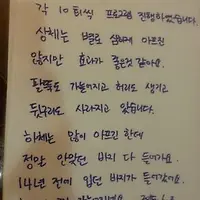 각 10회씩 프로그램 진행하였습니다.
상체는 별로 심하게 아프진
않지만 효과가 좋은것 같아요.
팔뚝도 가늘어지고 허리도 생기고
등구리도 사라지고 있습니다.
하체는 많이 아프긴 한데
정말 안맞던 바지 다 들어가요.
14년 전에 입던 바지가 들어갔어요.